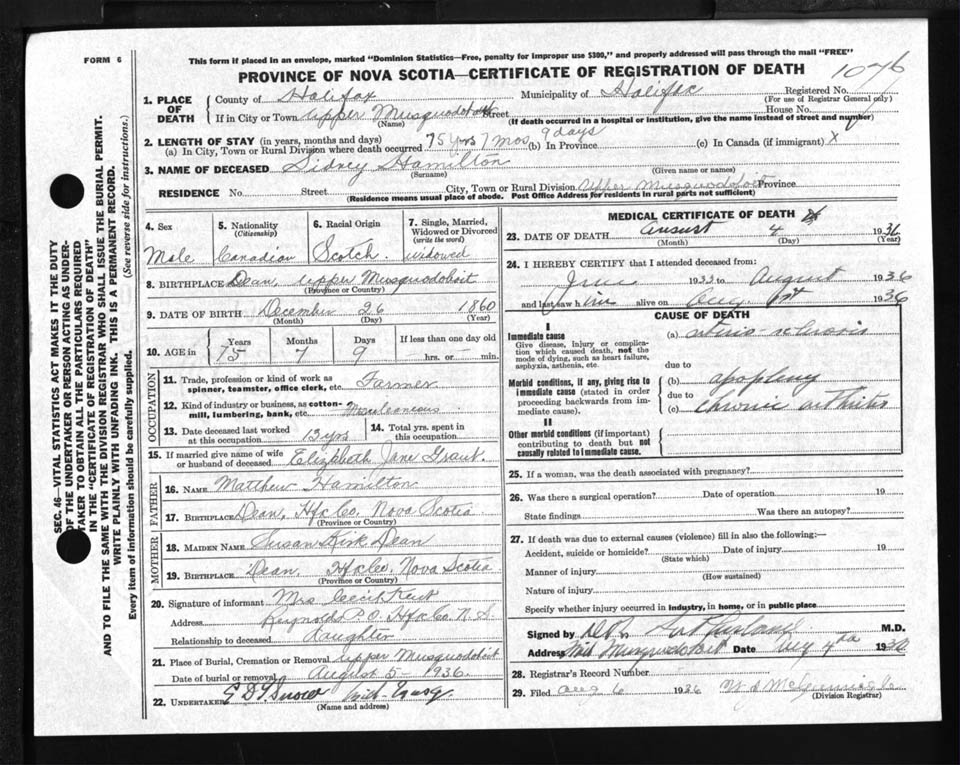 FORM 6
This form if placed in an envelope, marked "Dominion Statistics—Free, penalty for improper use $300," and properly addressed will pass through the mail "FREE"
PROVINCE OF NOVA SCOTIA—CERTIFICATE OF REGISTRATION OF DEATH
1076
1. PLACE OF DEATH
County of Halifax Municipality of Halifax Registered No.
(For use of Registrar General only)
If in City or Town Upper Musquodoboit Street House No.
(Name) (If death occurred in a hospital or institution, give the name instead of street and number)
2. LENGTH OF STAY (in years, months and days)
(a) In City, Town or Rural Division where death occurred 75 yrs 7 mos 9 days (b) In Province (c) In Canada (if immigrant) X
3. NAME OF DECEASED Sidney Hamilton
(Surname) (Given name or names)
RESIDENCE No. Street City, Town or Rural Division Upper Musquodoboit Province
(Residence means usual place of abode. Post Office Address for residents in rural parts not sufficient)
4. Sex
Male
5. Nationality (Citizenship)
Canadian
6. Racial Origin
Scotch
7. Single, Married, Widowed or Divorced (write the word)
widowed
8. BIRTHPLACE Dean, Upper Musquodoboit
(Province or Country)
9. DATE OF BIRTH December 26 1860
(Month) (Day) (Year)
10. AGE in Years Months Days If less than one day old
75 7 9 hrs. or min.
OCCUPATION
11. Trade, profession or kind of work as spinner, teamster, office clerk, etc. Farmer
12. Kind of industry or business, as cotton-mill, lumbering, bank, etc.
13. Date deceased last worked at this occupation 13 yrs
14. Total yrs. spent in this occupation
15. If married give name of wife or husband of deceased Elizabeth Jane Grant.
FATHER
16. NAME Matthew Hamilton
17. BIRTHPLACE Dean, Hfx Co. Nova Scotia
(Province or Country)
MOTHER
18. MAIDEN NAME Susan Kirk Dean
19. BIRTHPLACE Dean, Hfx Co. Nova Scotia
(Province or Country)
20. Signature of informant Mrs Cecil Kent
Address Reynolds P.O. Hfx Co. N.S.
Relationship to deceased Daughter
21. Place of Burial, Cremation or Removal Upper Musquodoboit
Date of burial or removal August 5, 1936.
22. UNDERTAKER
(Name and address)
MEDICAL CERTIFICATE OF DEATH
23. DATE OF DEATH August 4 1936
(Month) (Day) (Year)
24. I HEREBY CERTIFY that I attended deceased from:
June 1933 to August 1936
and last saw him alive on Aug. 1st 1936
CAUSE OF DEATH
I
Immediate cause
Give disease, injury or complication which caused death, not the mode of dying, such as heart failure, asphyxia, asthenia, etc.
(a) arterio-sclerosis
due to
Morbid conditions, if any, giving rise to immediate cause (stated in order proceeding backwards from immediate cause).
(b) apoplexy
due to
(c) chronic arthritis
II
Other morbid conditions (if important) contributing to death but not causally related to immediate cause.
25. If a woman, was the death associated with pregnancy?
26. Was there a surgical operation? Date of operation 19
State findings Was there an autopsy?
27. If death was due to external causes (violence) fill in also the following:—
Accident, suicide or homicide? Date of injury 19
(State which)
Manner of injury
(How sustained)
Nature of injury
Specify whether injury occurred in industry, in home, or in public place
Signed by M.D.
Address Mid. Musquodoboit Date Aug 4th 1936
28. Registrar's Record Number
29. Filed Aug 6 1936
(Division Registrar)
SEC. 46—VITAL STATISTICS ACT MAKES IT THE DUTY
OF THE UNDERTAKER OR PERSON ACTING AS UNDERTAKER TO OBTAIN ALL THE PARTICULARS REQUIRED
IN THE "CERTIFICATE OF REGISTRATION OF DEATH"
AND TO FILE THE SAME WITH THE DIVISION REGISTRAR WHO SHALL ISSUE THE BURIAL PERMIT.
WRITE PLAINLY WITH UNFADING INK. THIS IS A PERMANENT RECORD.
Every item of information should be carefully supplied. (See reverse side for instructions.)